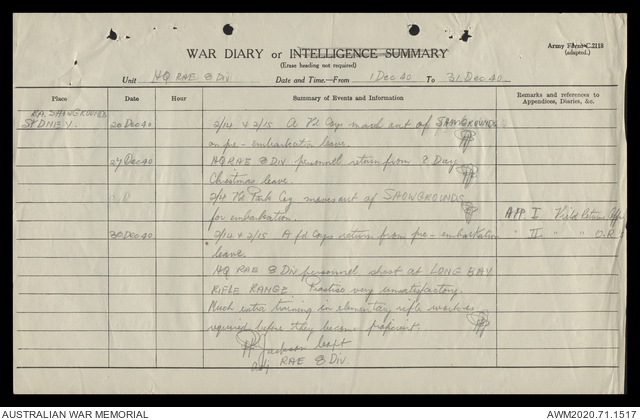 Army Form C.2118
(adapted.)
WAR DIARY or INTELLIGENCE SUMMARY
(Erase heading not required)
Unit HQ RAE 8 Div Date and Time.—From 1 Dec 40 To 31 Dec 40
Place Date Hour Summary of Events and Information Remarks and references to Appendices, Diaries, &c.
R.A. SHOWGROUNDS
SYDNEY. 20 Dec 40 2/14 & 2/15 A Fd Coys march out of SHOWGROUNDS
on pre-embarkation leave.
27 Dec 40 HQ RAE 8 Div personnel return from 7 Day
Christmas leave.
2/4 Fd Park Coy moves out of SHOWGROUNDS
for embarkation. APP I. Field Return Off
30 Dec 40 2/14 & 2/15 A Fd Coys return from pre-embarkation " II " " O.R.
leave.
HQ RAE 8 Div personnel shoot at LONG BAY
RIFLE RANGE. Practise very unsatisfactory.
Much extra training in elementary rifle work is
required before they become proficient.
Jackson Capt
Adj RAE 8 Div.
AUSTRALIAN WAR MEMORIAL AWM2020.71.1517